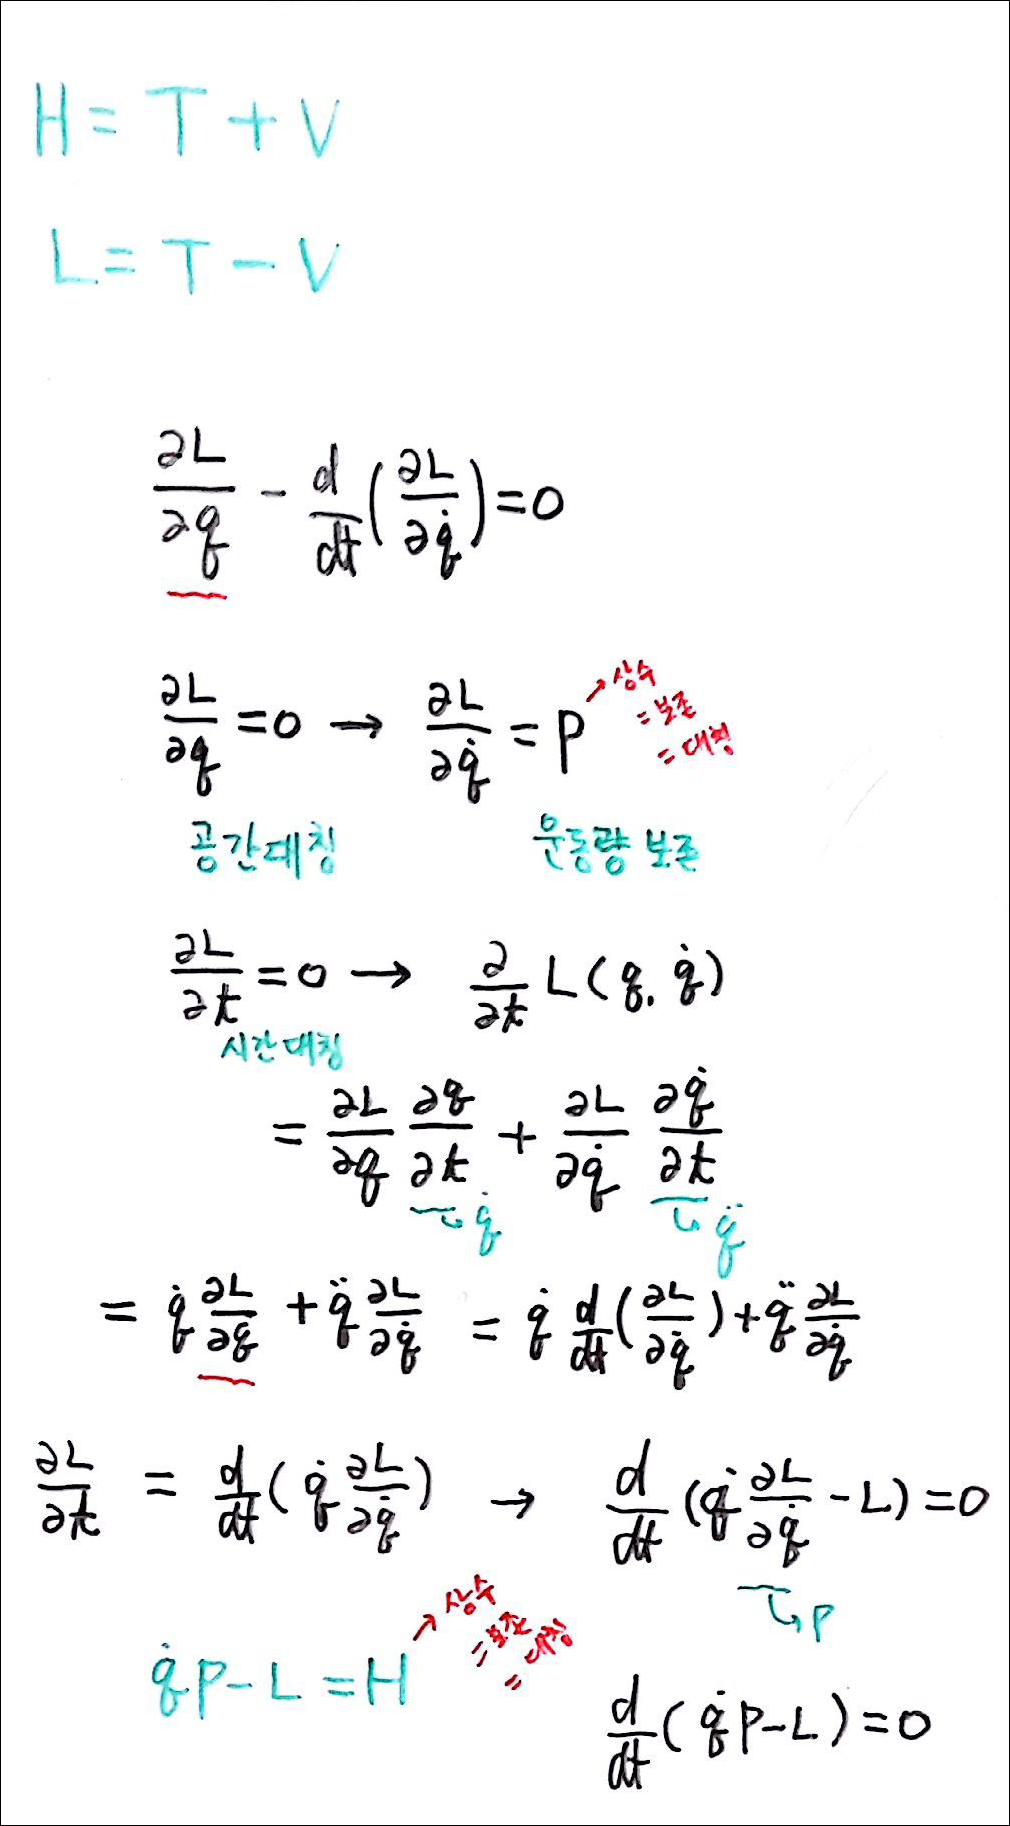 H = T + V
L = T - V
∂L/∂q - d/dt(∂L/∂q̇) = 0
∂L/∂q = 0 → ∂L/∂q̇ = P → 상수
= 보존
= 대칭
공간대칭 운동량 보존
∂L/∂t = 0 → ∂/∂t L(q, q̇)
시간대칭
= ∂L/∂q ∂q/∂t + ∂L/∂q̇ ∂q̇/∂t
↳ q̇ ↳ q̈
= q̇ ∂L/∂q + q̈ ∂L/∂q̇ = q̇ d/dt(∂L/∂q̇) + q̈ ∂L/∂q̇
∂L/∂t = d/dt(q̇ ∂L/∂q̇) → d/dt(q̇ ∂L/∂q̇ - L) = 0
↳ P
q̇P - L = H → 상수
= 보존
= 대칭
d/dt(q̇P - L) = 0